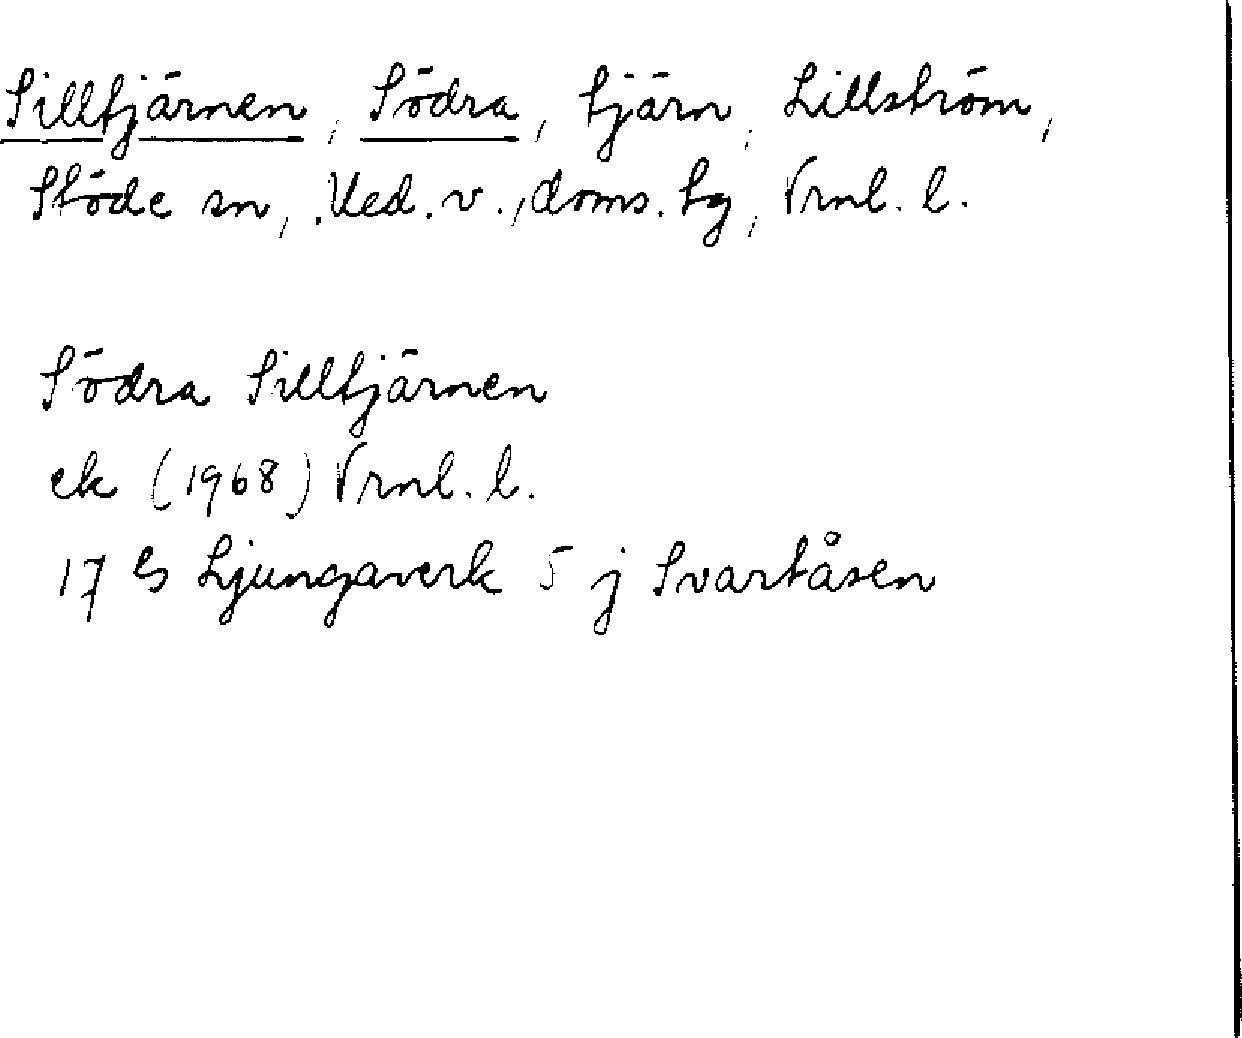 Silltjärnen, Södra, tjärn, Lillström,
Stöde sn, Med. v., doms. tg, Vrnl. l.
Södra Silltjärnen
ek (1968) Vrnl. l.
17 G Ljungaverk 5 j Svartåsen